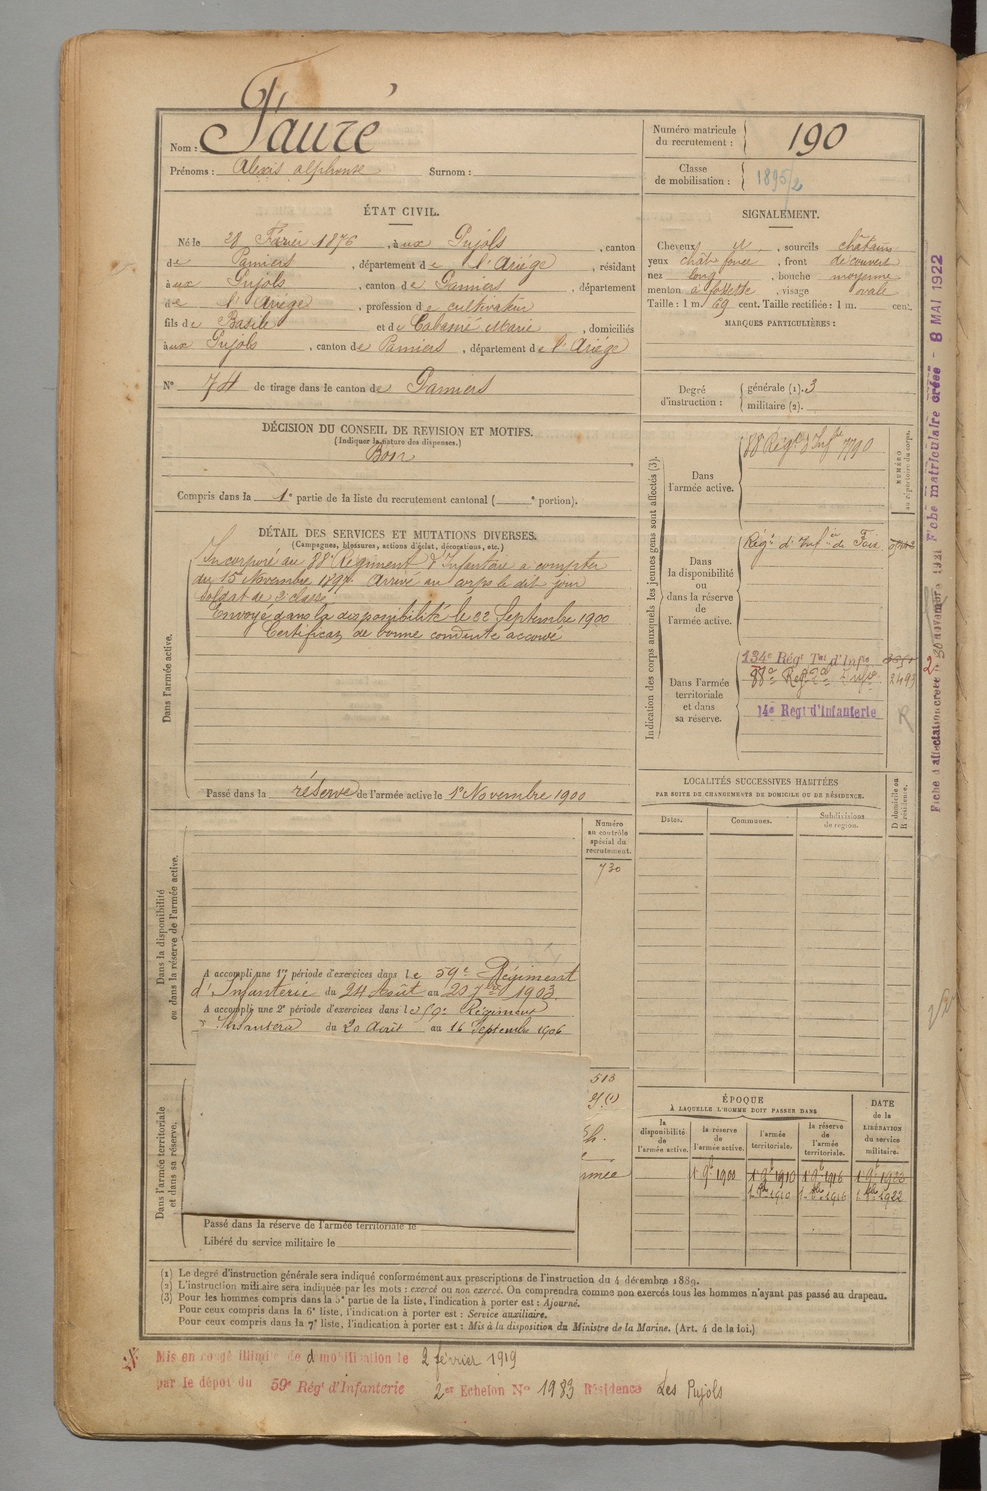 Nom : Fauré
Prénoms : Alexis Alphonse Surnom :
Numéro matricule du recrutement : 190
Classe de mobilisation : 1895/2
ÉTAT CIVIL.
Né le 28 Février 1876, à ux Pujols, canton
de Pamiers, département de l'Ariège, résidant
à ux Pujols, canton de Pamiers, département
de l'Ariège, profession de cultivateur
fils de Basile et de Cabanié Marie, domiciliés
à ux Pujols, canton de Pamiers, département de l'Ariège
N° 74 de tirage dans le canton de Pamiers
SIGNALEMENT.
Cheveux et, sourcils châtains
yeux chât. foncé, front découvert
nez long, bouche moyenne
menton à fossette, visage ovale
Taille : 1 m. 69 cent. Taille rectifiée : 1 m. cent.
MARQUES PARTICULIÈRES :
Degré d'instruction : générale (1). 3
militaire (2).
DÉCISION DU CONSEIL DE REVISION ET MOTIFS.
(Indiquer la nature des dispenses.)
Bon
Compris dans la 1e partie de la liste du recrutement cantonal ( e portion).
DÉTAIL DES SERVICES ET MUTATIONS DIVERSES.
(Campagnes, blessures, actions d'éclat, décorations, etc.)
Dans l'armée active.
Incorporé au 88e Régiment d'Infanterie à compter
du 15 Novembre 1897. Arrivé au corps le dit jour
Soldat de 2e classe
Envoyé dans la disponibilité le 22 Septembre 1900
Certificat de bonne conduite accordé
Passé dans la réserve de l'armée active le 1er Novembre 1900
Indication des corps auxquels les jeunes gens sont affectés (3).
NUMÉRO au répertoire du corps.
Dans l'armée active.
88 Régt d'Infie 7790
Dans la disponibilité ou dans la réserve de l'armée active.
Régt d'Infie de Foix
Dans l'armée territoriale et dans sa réserve.
134e Régt Tal d'Infie
88e Régt d'Infie 2493
14e Régt d'Infanterie
R
LOCALITÉS SUCCESSIVES HABITÉES
PAR SUITE DE CHANGEMENTS DE DOMICILE OU DE RÉSIDENCE.
Dates. Communes. Subdivisions de région. D domicile ou R résidence.
Numéro au contrôle spécial du recrutement.
730
Dans la disponibilité ou dans la réserve de l'armée active.
A accompli une 1re période d'exercices dans le 59e Régiment
d'Infanterie du 24 Août au 20 7bre 1903.
A accompli une 2e période d'exercices dans le 59e Régiment
d'Infanterie du 20 Août au 16 Septembre 1906
Dans l'armée territoriale et dans sa réserve.
513
Passé dans la réserve de l'armée territoriale le
Libéré du service militaire le
ÉPOQUE
À LAQUELLE L'HOMME DOIT PASSER DANS
DATE de la LIBÉRATION du service militaire.
la disponibilité de l'armée active. la réserve de l'armée active. l'armée territoriale. la réserve de l'armée territoriale.
1er 9bre 1900 1er 9bre 1910 1er 9bre 1916 1er 9bre 1922
1er 8bre 1910 1er 8bre 1916 1er 8bre 1922
(1) Le degré d'instruction générale sera indiqué conformément aux prescriptions de l'instruction du 4 décembre 1889.
(2) L'instruction militaire sera indiquée par les mots : exercé ou non exercé. On comprendra comme non exercés tous les hommes n'ayant pas passé au drapeau.
(3) Pour les hommes compris dans la 5e partie de la liste, l'indication à porter est : Ajourné.
Pour ceux compris dans la 6e liste, l'indication à porter est : Service auxiliaire.
Pour ceux compris dans la 7e liste, l'indication à porter est : Mis à la disposition du Ministre de la Marine. (Art. 4 de la loi.)
Mis en congé illimité de démobilisation le 2 février 1919
par le dépôt du 59e Régt d'Infanterie 2er Echelon No 1983 Résidence Les Pujols
Fiche matriculaire créée - 8 MAI 1922